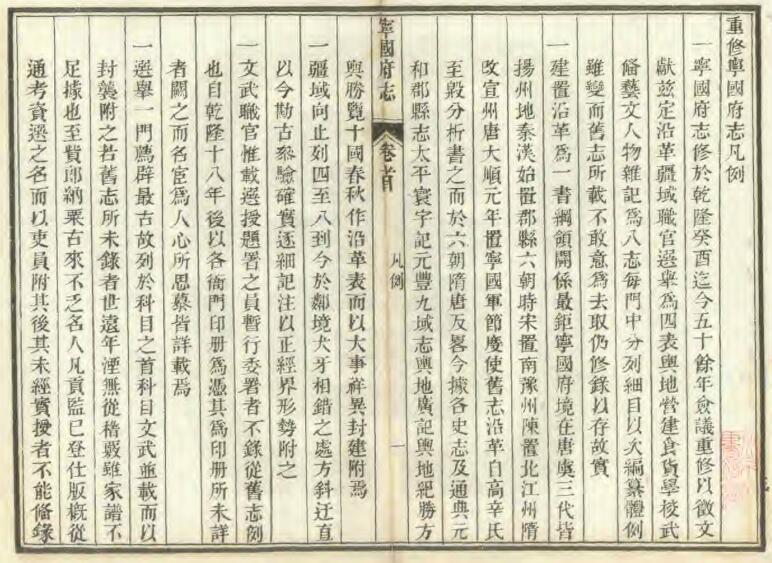 重修寧國府志凡例
一寧國府志修於乾隆癸酉迄今五十餘年僉議重修以徵文
獻茲定沿革疆域職官選舉爲四表輿地營建食貨學校武
備藝文人物雜記爲八志每門中分列細目以次編纂體例
雖變而舊志所載不敢意爲去取仍修錄以存故實
一建置沿革爲一書綱領關係最鉅寧國府境在唐虞三代皆
揚州地秦漢始置郡縣六朝時宋置南豫州陳置北江州隋
改宣州唐大順元年置寧國軍節度使舊志沿革自高辛氏
至殷分析書之而於六朝隋唐反畧今據各史志及通典元
和郡縣志太平寰宇記元豐九域志輿地廣記輿地紀勝方
寧國府志
卷首
凡例
一
輿勝覽十國春秋作沿革表而以大事祥異封建附焉
一疆域向止列四至八到今於鄰境犬牙相錯之處方斜迂直
以今勘古參驗確實逐細記注以正經界形勢附之
一文武職官惟載選授題署之員暫行委署者不錄從舊志例
也自乾隆十八年後以各衙門印册爲憑其爲印册所未詳
者闕之而名宦爲人心所思慕皆詳載焉
一選舉一門薦辟最古故列於科目之首科目文武並載而以
封襲附之若舊志所未錄者世遠年湮無從稽覈雖家譜不
足據也至貲郎納粟古來不乏名人凡貢監已登仕版概從
通考資選之名而以吏員附其後其未經實授者不能備錄